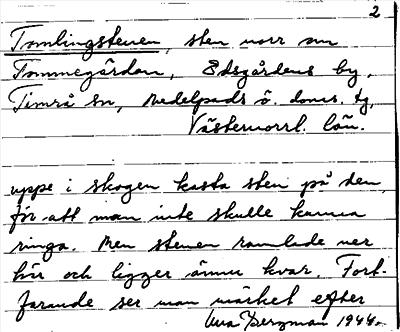 2
Tomlingstenen, sten norr om
Tommegården, Edsgårdens by,
Timrå sn, Medelpads ö. doms. tg,
Västernorrl. län.
uppe i skogen kasta sten på den
för att man inte skulle kunna
ringa. Men stenen ramlade ner
här och ligger ännu kvar. Fort-
farande ser man märket efter
Bergman 1944.